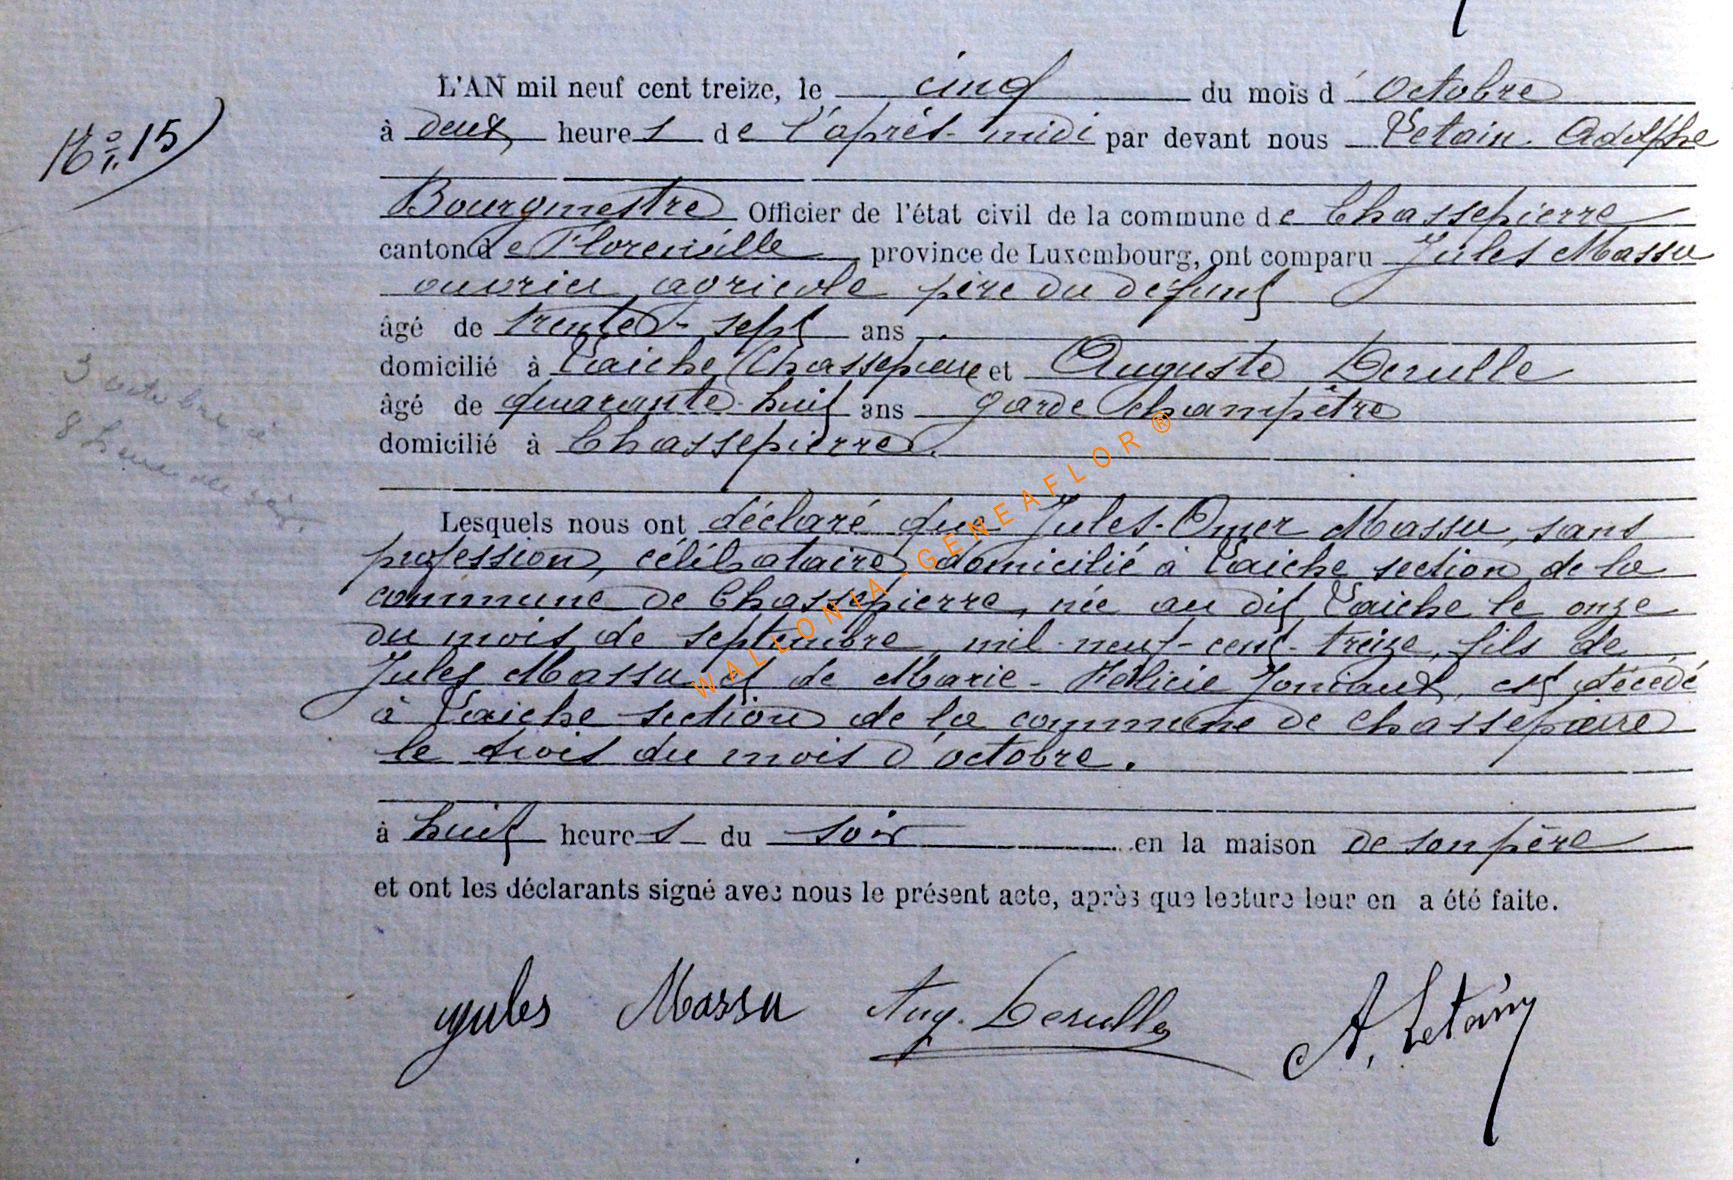 L'AN mil neuf cent treize, le cinq du mois d'octobre
No 15
à deux heures de l'après-midi par devant nous Letain Adolphe
Bourgmestre Officier de l'état civil de la commune de Chassepierre
canton de Florenville province de Luxembourg, ont comparu Jules Massu
ouvrier agricole père du défunt
âgé de trente-sept ans
domicilié à Laiche Chassepierre et Auguste Derulle
3 octobre à
âgé de quarante-huit ans garde champêtre
8 heures du soir
domicilié à Chassepierre.
Lesquels nous ont déclaré que Jules-Omer Massu, sans
profession, célibataire domicilié à Laiche section de la
commune de Chassepierre, née au dit Laiche le onze
du mois de septembre mil-neuf-cent-treize, fils de
Jules Massu et de Marie-Félicie Joniaux, est décédé
à Laiche section de la commune de Chassepierre
le trois du mois d'octobre.
à huit heures du soir en la maison de son père
et ont les déclarants signé avec nous le présent acte, après que lecture leur en a été faite.
Jules Massu Aug. Derulle A. Letain
WALLONIA-GENEAFLOR®